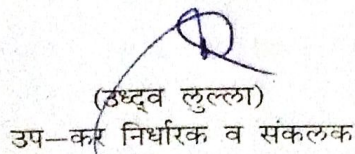 (उध्दव लुल्ला)
उप–कर निर्धारक व संकलक